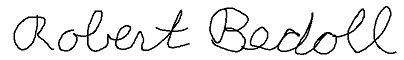 Robert Bedoll